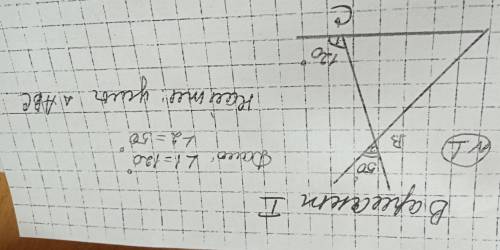 Вариант II
№1
Дано: ∠1 = 120°
∠2 = 50°
Найти: углы △ABC
C
1
120°
B
2
50°